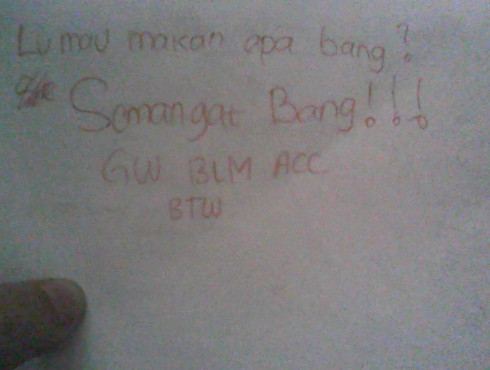 Lu mau makan apa bang?
Semangat Bang!!!
GW BLM ACC
BTW